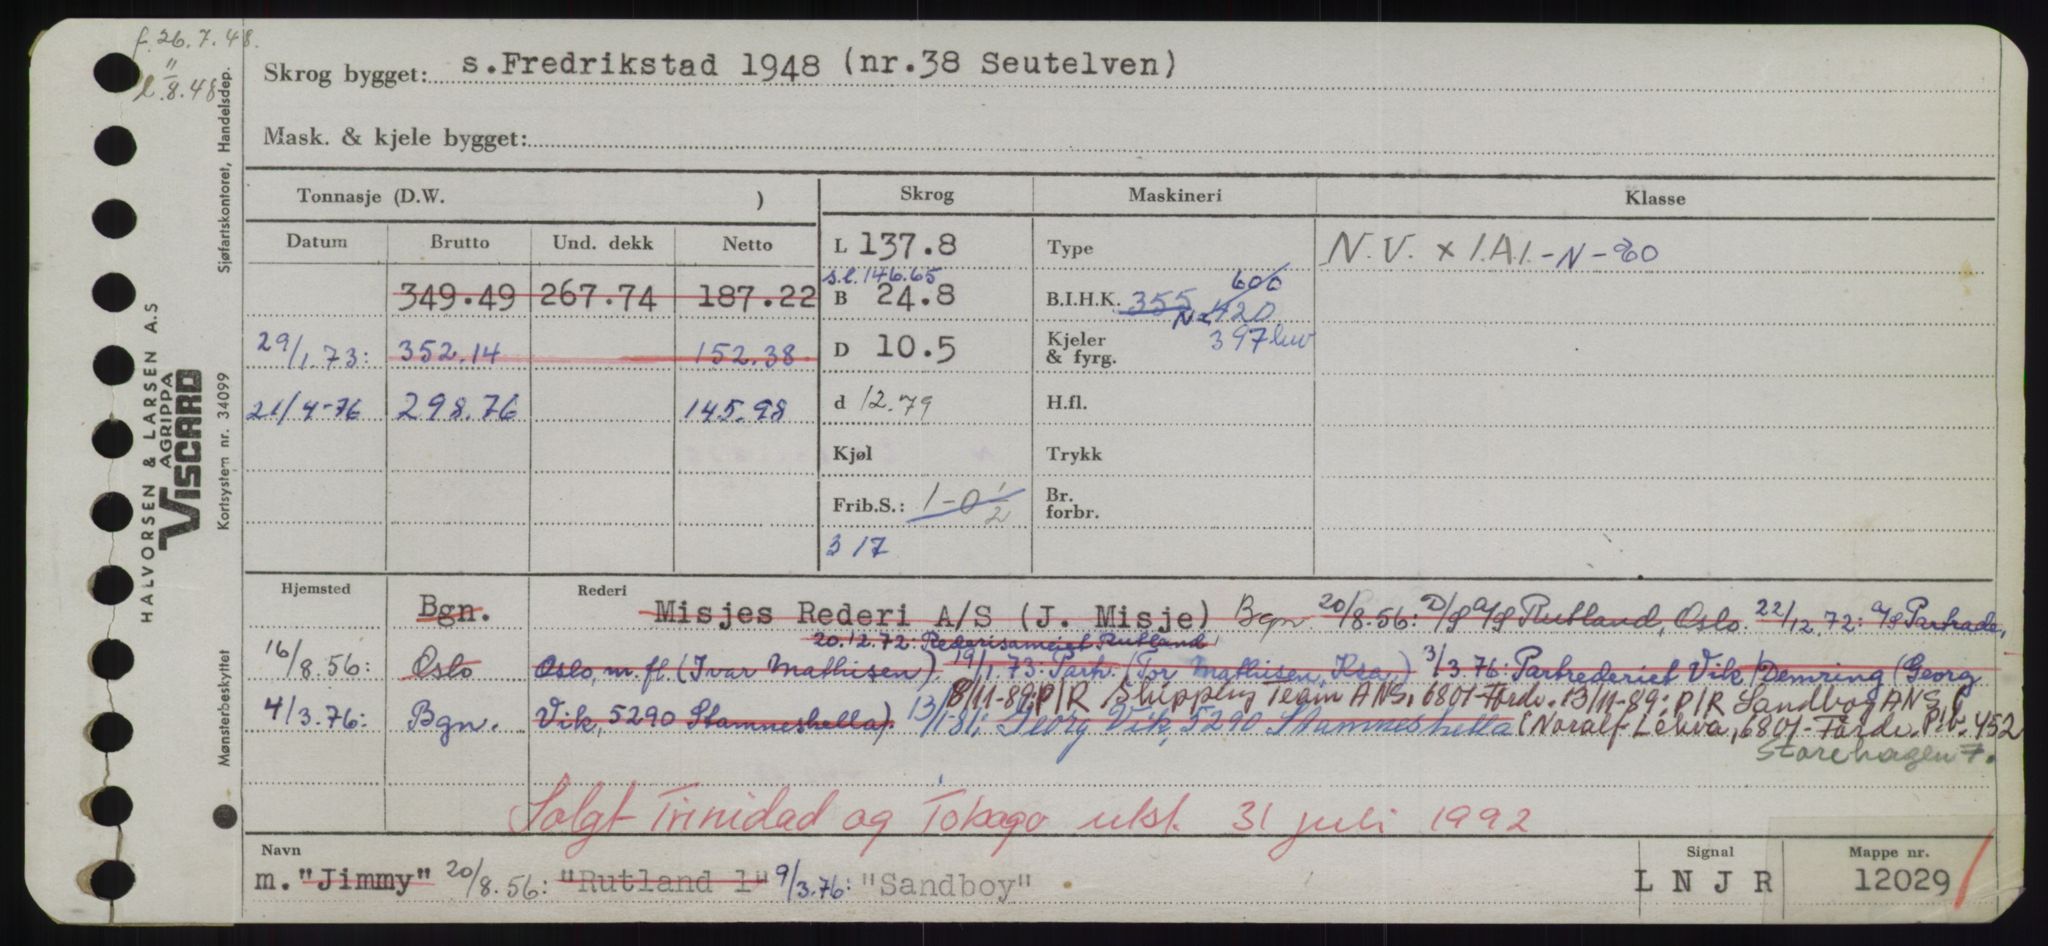 f. 26.7.48.
l. " 8.48
Skrog bygget: s.Fredrikstad 1948 (nr.38 Seutelven)
Mask. & kjele bygget:
Tonnasje (D.W. ) Skrog Maskineri Klasse
Datum Brutto Und. dekk Netto L 137.8 Type N.V. x 1.A.1. - N - 80
s.l. 146.65
349.49 267.74 187.22 B 24.8 B.I.H.K. 355 606 420
29/1.73: 352.14 152.38 D 10.5 Kjeler & fyrg. 397 kw
21/4-76 298.76 145.98 d 12.79 H.fl.
Kjøl Trykk
Frib.S.: 1-0 1/2 Br. forbr.
317
Hjemsted Rederi
Bgn. Misjes Rederi A/S (J. Misje) Bgn 20/8.56: D/S A/S Rutland, Oslo. 22/12.72: A/S Partrade,
20.12.72: Rederisameiet Rutland
16/8.56: Oslo Oslo, m.fl (Ivar Mathisen) 19/1.73: Partr. (Tor Mathisen, Ksa.) 3/3.76: Partrederiet Vik/Demring (Georg
8/11-89: P/R Shipping Team ANS, 6801-Førde. 13/11-89: P/R Sandboy ANS,
4/3.76: Bgn. Vik, 5290 Stamneshella). 13/1-81: Georg Vik, 5290 Stamneshella (Noralf Lehva, 6801-Førde. P.b. 452
Storehagen 7.
Solgt Trinidad og Tobago utsl. 31 juli 1992
Navn Signal Mappe nr.
m. "Jimmy" 20/8.56: "Rutland 1" 9/3.76: "Sandboy" L N J R 12029
HALVORSEN & LARSEN A.S
AGRIPPA
VISCARD
Kortsystem nr. 34099
Sjøfartskontoret, Handelsdep.
Mønsterbeskyttet